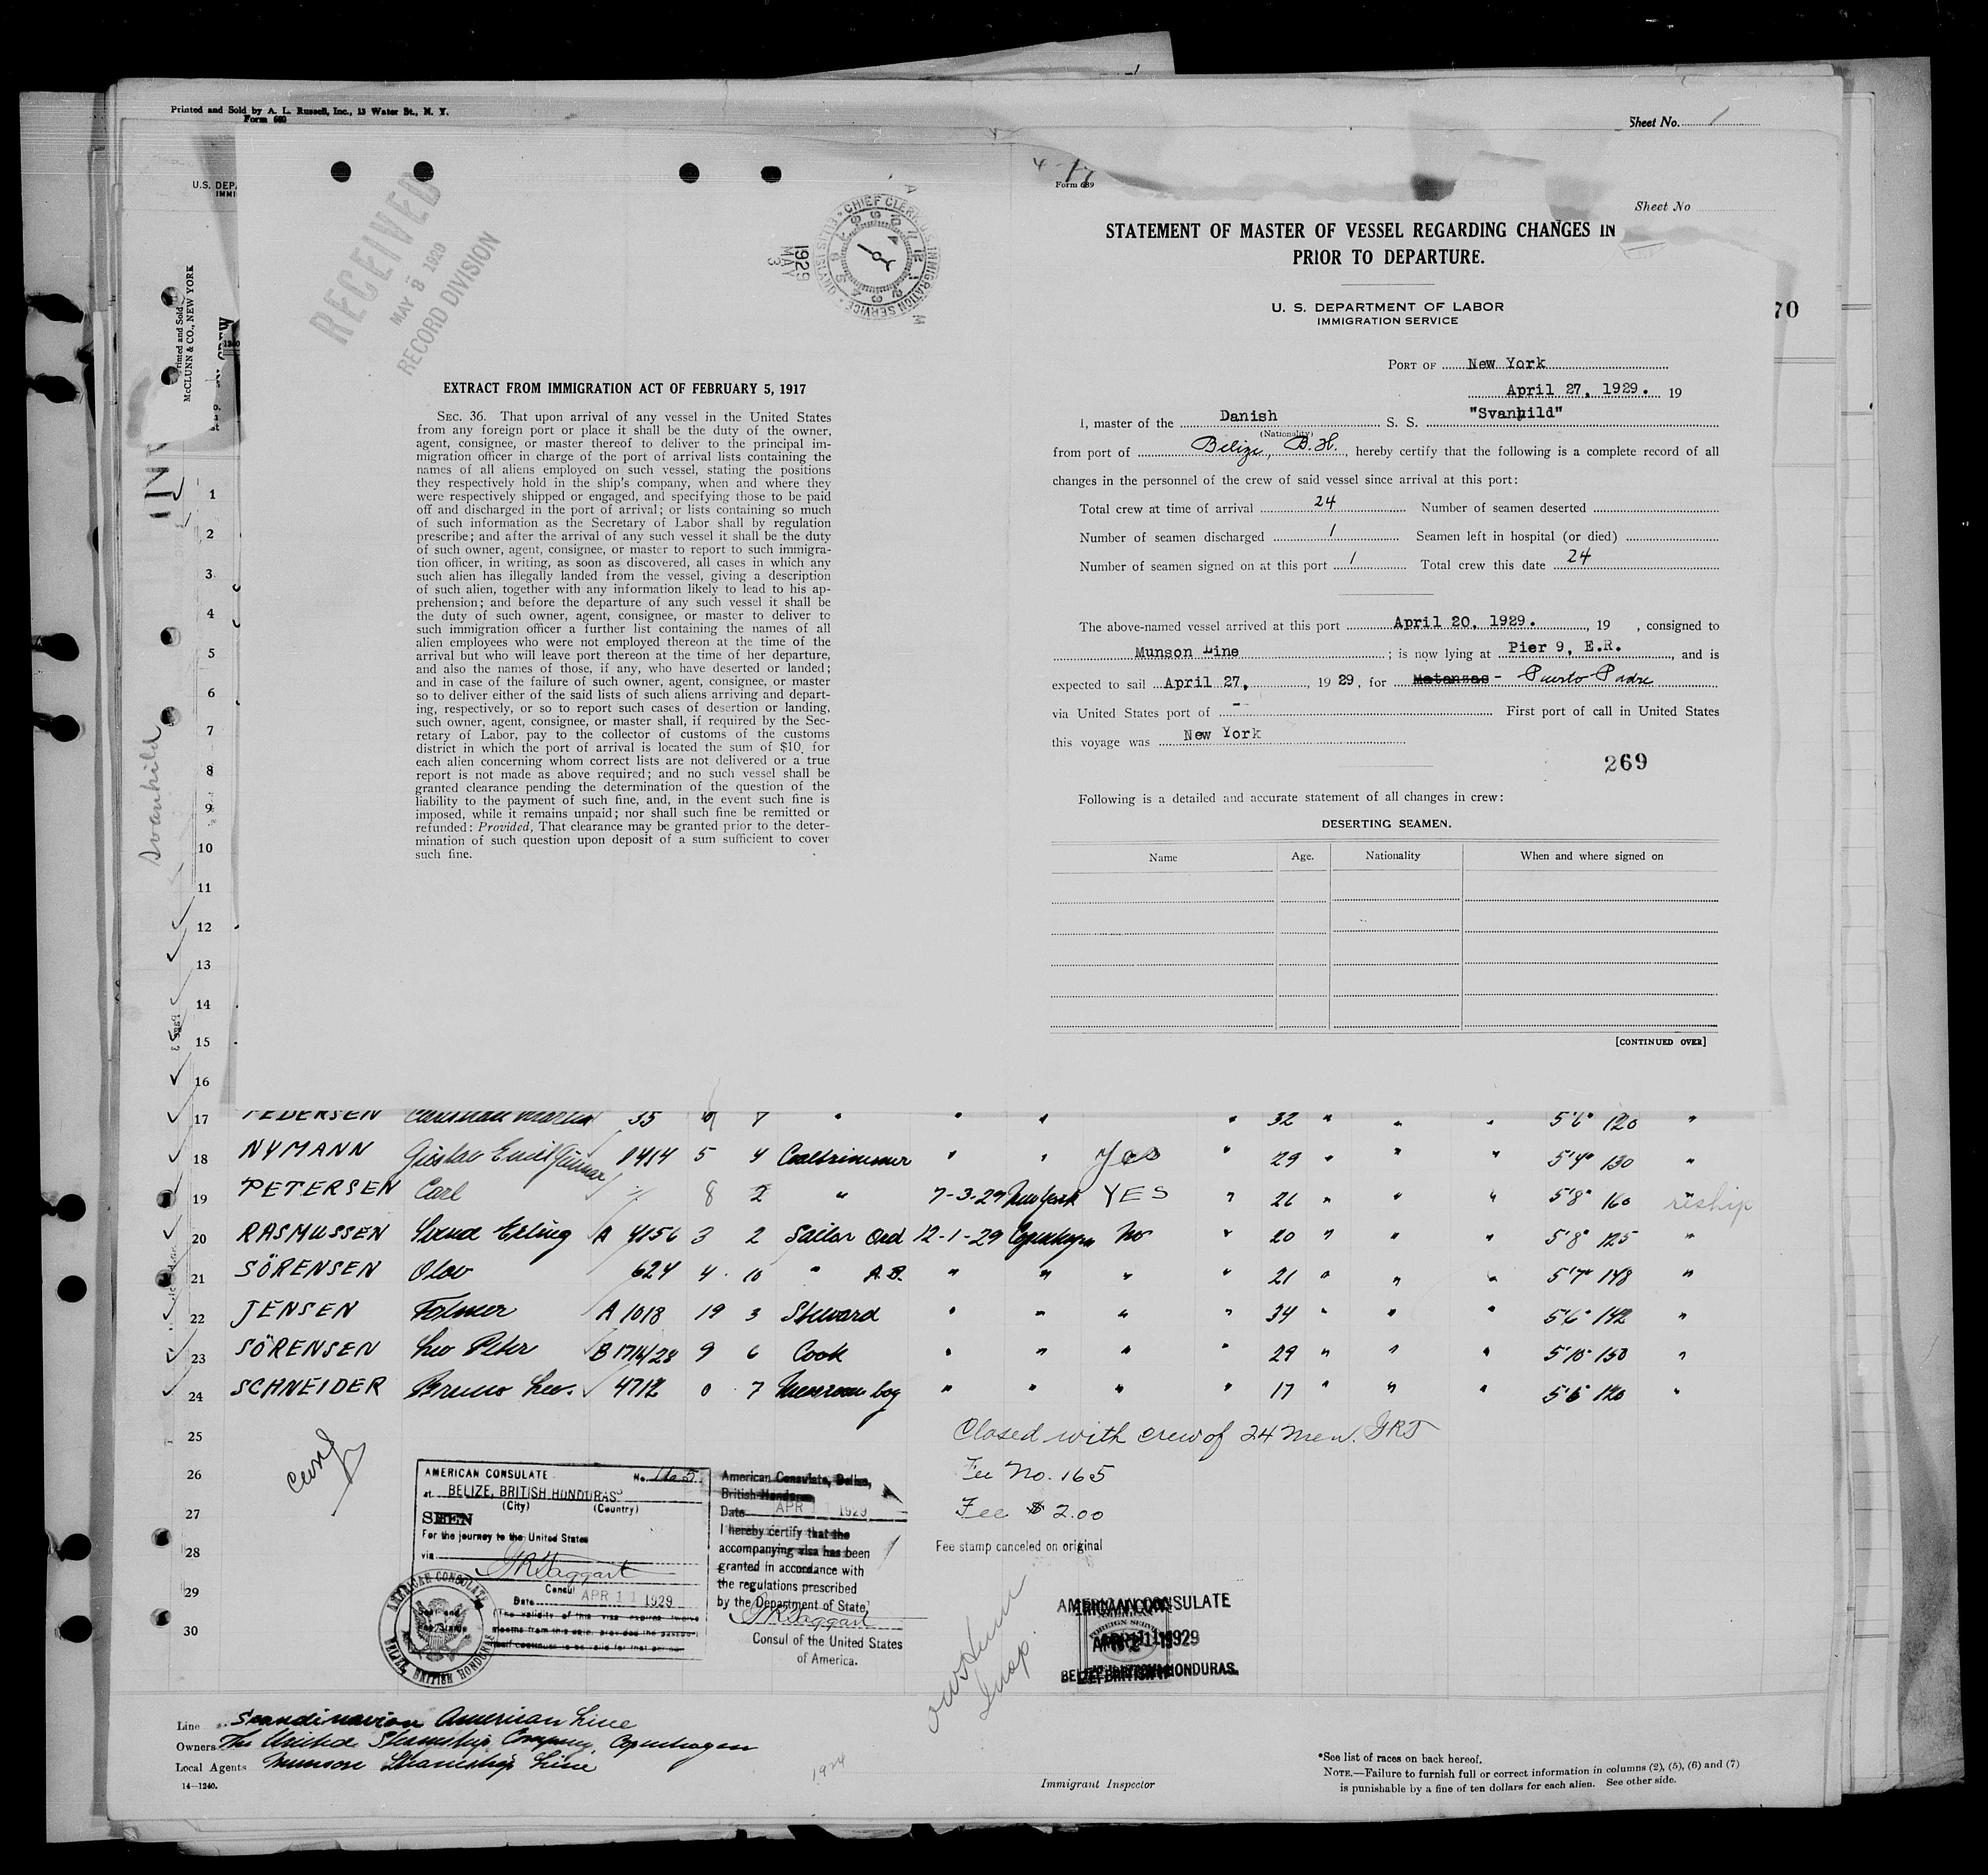 Printed and Sold by A. L. Russell, Inc., 13 Water St., N. Y.
Form 680
Sheet No. 1
U.S. DEP
IMMI
Printed and Sold
McCLUNN & CO., NEW YORK
Svanhild
RECEIVED
MAY 8 1929
RECORD DIVISION
1929
MAY
3
CHIEF CLERK
IMMIGRATION SERVICE
EXTRACT FROM IMMIGRATION ACT OF FEBRUARY 5, 1917
SEC. 36. That upon arrival of any vessel in the United States
from any foreign port or place it shall be the duty of the owner,
agent, consignee, or master thereof to deliver to the principal im-
migration officer in charge of the port of arrival lists containing the
names of all aliens employed on such vessel, stating the positions
they respectively hold in the ship's company, when and where they
were respectively shipped or engaged, and specifying those to be paid
off and discharged in the port of arrival; or lists containing so much
of such information as the Secretary of Labor shall by regulation
prescribe; and after the arrival of any such vessel it shall be the duty
of such owner, agent, consignee, or master to report to such immigra-
tion officer, in writing, as soon as discovered, all cases in which any
such alien has illegally landed from the vessel, giving a description
of such alien, together with any information likely to lead to his ap-
prehension; and before the departure of any such vessel it shall be
the duty of such owner, agent, consignee, or master to deliver to
such immigration officer a further list containing the names of all
alien employees who were not employed thereon at the time of the
arrival but who will leave port thereon at the time of her departure,
and also the names of those, if any, who have deserted or landed;
and in case of the failure of such owner, agent, consignee, or master
so to deliver either of the said lists of such aliens arriving and depart-
ing, respectively, or so to report such cases of desertion or landing,
such owner, agent, consignee, or master shall, if required by the Sec-
retary of Labor, pay to the collector of customs of the customs
district in which the port of arrival is located the sum of $10 for
each alien concerning whom correct lists are not delivered or a true
report is not made as above required; and no such vessel shall be
granted clearance pending the determination of the question of the
liability to the payment of such fine, and, in the event such fine is
imposed, while it remains unpaid; nor shall such fine be remitted or
refunded: Provided, That clearance may be granted prior to the deter-
mination of such question upon deposit of a sum sufficient to cover
such fine.
Form 689
Sheet No
STATEMENT OF MASTER OF VESSEL REGARDING CHANGES IN
PRIOR TO DEPARTURE.
U. S. DEPARTMENT OF LABOR
IMMIGRATION SERVICE
70
PORT OF New York
April 27, 1929. 19
I, master of the Danish S. S. "Svanhild"
(Nationality)
from port of Belize, B.H., hereby certify that the following is a complete record of all
changes in the personnel of the crew of said vessel since arrival at this port:
Total crew at time of arrival 24 Number of seamen deserted
Number of seamen discharged 1 Seamen left in hospital (or died)
Number of seamen signed on at this port 1 Total crew this date 24
The above-named vessel arrived at this port April 20, 1929. , 19 , consigned to
Munson Line ; is now lying at Pier 9, E.R. , and is
expected to sail April 27, , 1929, for Matanzas - Puerto Padre
via United States port of - First port of call in United States
this voyage was New York
269
Following is a detailed and accurate statement of all changes in crew:
DESERTING SEAMEN.
Name Age. Nationality When and where signed on
[CONTINUED OVER]
1
2
3
4
5
6
7
8
9
10
11
12
13
14
15
16
17 PEDERSEN 35 7 " " " " 32 " " " 5'6" 120 "
18 NYMANN Gustav Emil Gunnar 1414 5 4 Coaltrimmer " " Yes " 29 " " " 5'4" 130 "
19 PETERSEN Carl 8 2 " 7-3-29 New York YES " 26 " " " 5'8" 160 reship
20 RASMUSSEN Svend Erling A 4156 3 2 Sailor Ord 12-1-29 Copenhagen No " 20 " " " 5'8" 125 "
21 SÖRENSEN Olav 624 4 10 " A.B. " " " " 21 " " " 5'7" 148 "
22 JENSEN Folmer A 1018 19 3 Steward " " " " 34 " " " 5'6" 142 "
23 SÖRENSEN Leo Peter B 1714/28 9 6 Cook " " " " 29 " " " 5'10" 150 "
24 SCHNEIDER Bruno Leo. 4712 0 7 Messroom boy " " " " 17 " " " 5'6 120 "
25 Closed with crew of 24 men. GRT
26 Fee No. 165
27 Fee $ 2.00
28 Fee stamp canceled on original
29
30
AMERICAN CONSULATE No. 165
at BELIZE, BRITISH HONDURAS
(City) (Country)
SEEN
For the journey to the United States
via
GRTaggart
Consul
Date APR 11 1929
AMERICAN CONSULATE
BELIZE, BRITISH HONDURAS
American Consulate, Belize,
British Honduras
Date APR 11 1929
I hereby certify that the
accompanying visa has been
granted in accordance with
the regulations prescribed
by the Department of State.
GRTaggart
Consul of the United States
of America.
AMERICAN CONSULATE
APR 11 1929
BELIZE, BRITISH HONDURAS.
Insp.
Line Scandinavian American Line
Owners The United Steamship Company Copenhagen
Local Agents Munson Steamship Line
14—1240.
1924
Immigrant Inspector
*See list of races on back hereof.
NOTE.—Failure to furnish full or correct information in columns (2), (5), (6) and (7)
is punishable by a fine of ten dollars for each alien. See other side.